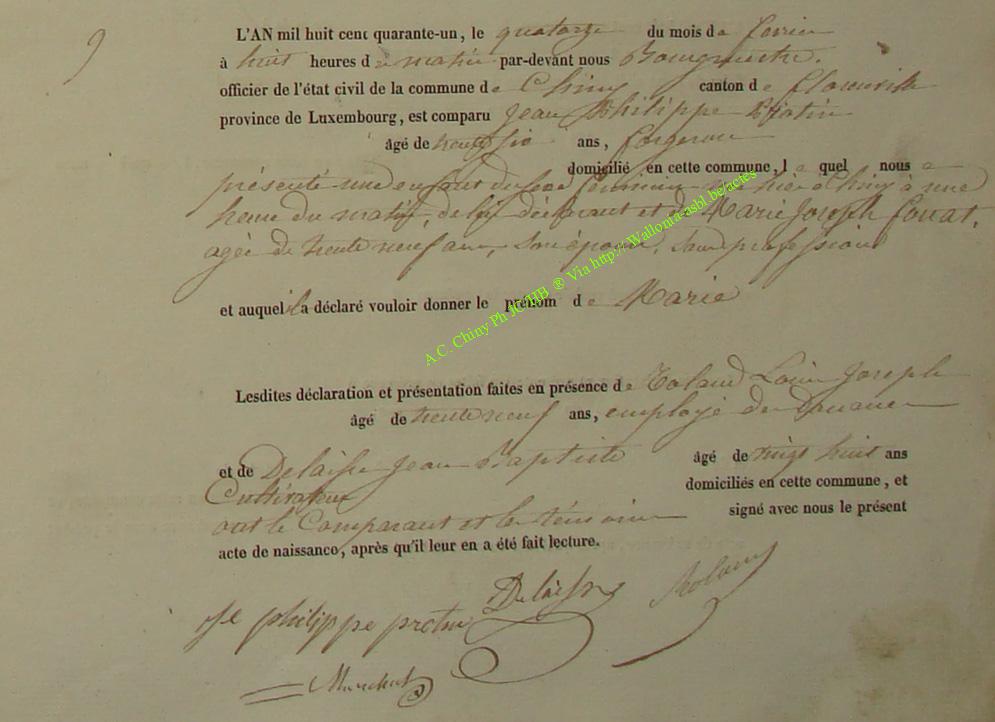 9
L'AN mil huit cent quarante-un, le quatorze du mois de fevrier
à huit heures du matin par-devant nous Bourgmestre.
officier de l'état civil de la commune de Chiny canton de florenville
province de Luxembourg, est comparu Jean Philippe
âgé de trente six ans, forgeron
domicilié en cette commune, lequel nous a
présenté une enfant du sexe feminin née hier a Chiny à une
heure du matin, de lui déclarant et de Marie Joseph
agée de trente neuf ans, son épouse, sans profession
et auquel il a déclaré vouloir donner le prénom de Marie
Lesdites déclaration et présentation faites en présence de Roland Louis Joseph
âgé de trente neuf ans, employé des Douanes
et de Delaisse Jean Baptiste âgé de vingt huit ans
Cultivateur domiciliés en cette commune, et
ont le Comparant et les témoins signé avec nous le présent
acte de naissance, après qu'il leur en a été fait lecture.
Delaisse Roland
philippe protin
A.C. Chiny Ph JC HB ® Via http://Wallonia-asbl.be/actes